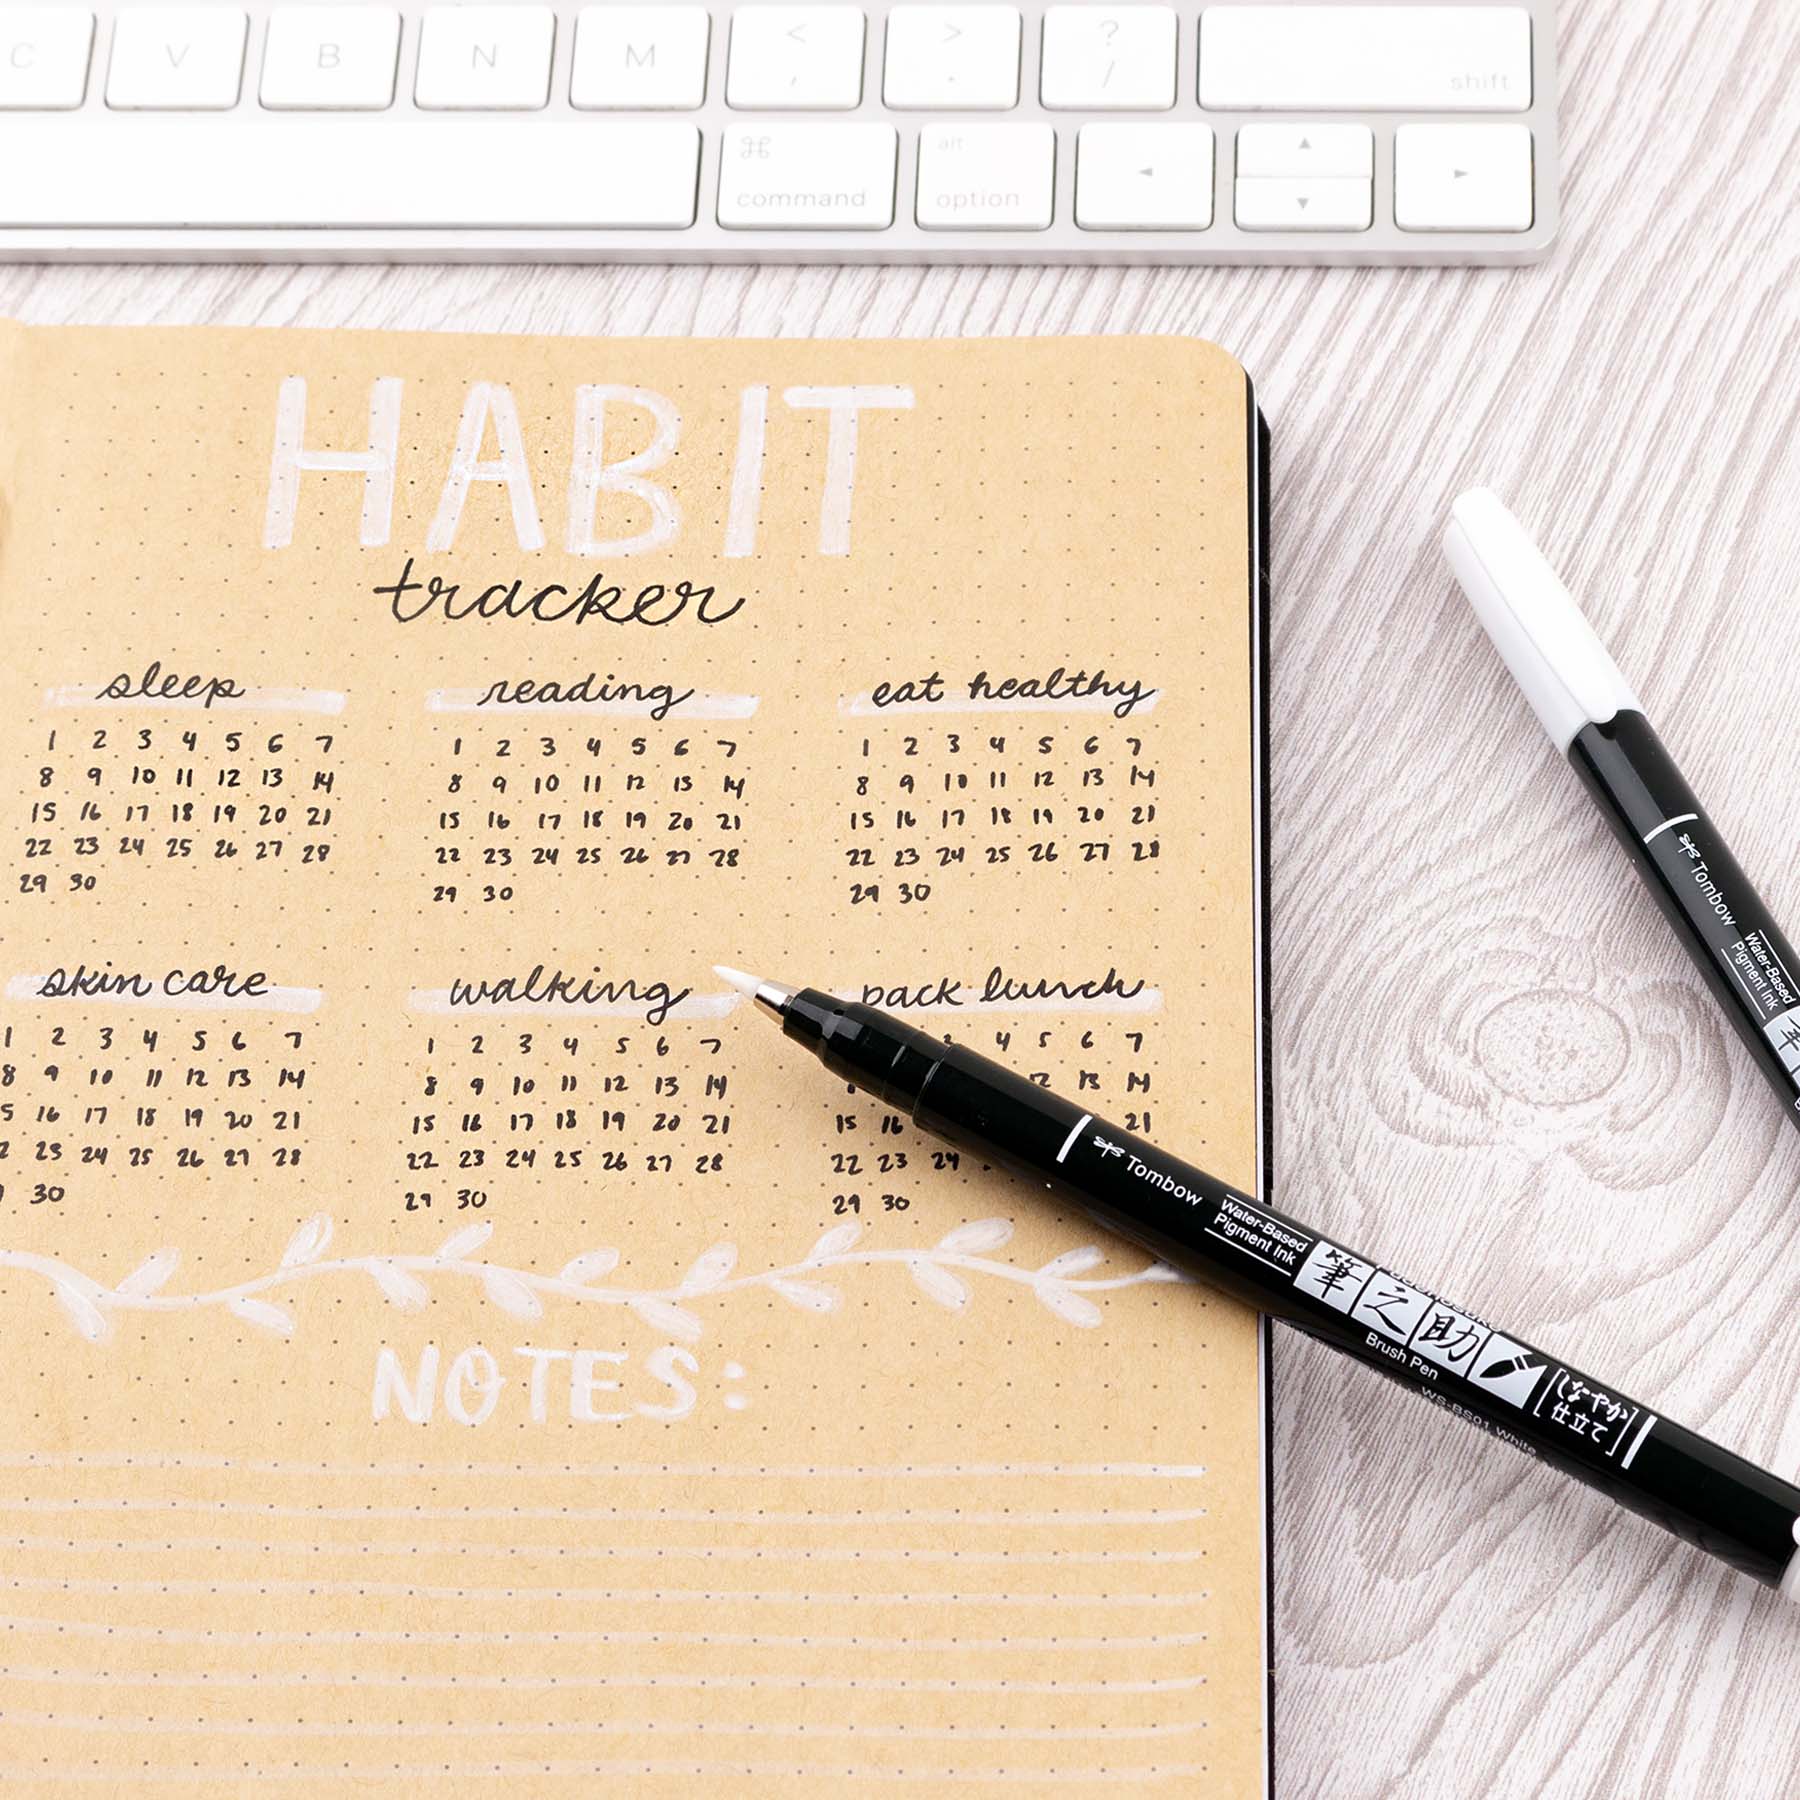 C V B N M < , > . ? / shift
⌘ command alt option ◄ ▲ ▼ ►
HABIT
tracker
sleep
1 2 3 4 5 6 7
8 9 10 11 12 13 14
15 16 17 18 19 20 21
22 23 24 25 26 27 28
29 30
reading
1 2 3 4 5 6 7
8 9 10 11 12 13 14
15 16 17 18 19 20 21
22 23 24 25 26 27 28
29 30
eat healthy
1 2 3 4 5 6 7
8 9 10 11 12 13 14
15 16 17 18 19 20 21
22 23 24 25 26 27 28
29 30
skin care
1 2 3 4 5 6 7
8 9 10 11 12 13 14
16 17 18 19 20 21
23 24 25 26 27 28
30
walking
1 2 3 4 5 6 7
8 9 10 11 12 13 14
15 16 17 18 19 20 21
22 23 24 25 26 27 28
29 30
pack lunch
4 5 6 7
13 14
15 16 21
22 23 24
29 30
NOTES:
Tombow
Water-Based
Pigment Ink
筆之助
Brush Pen
WS-BS01 White
しなやか
仕立て
Tombow
Water-Based
Pigment Ink